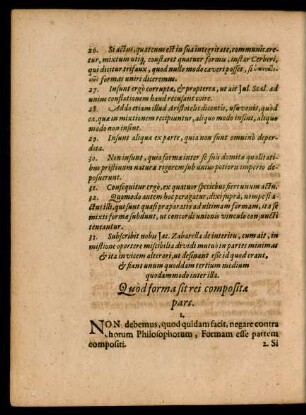 26. Si actus, quatenus est in sua integritate, communicaretur, mixtum utiq; constaret quatuor formis, instar Cerberi,
qui dicitur trifaux, quod nullo modo caveri posset, si
formas uniri diceremus.
27. Insunt ergò corruptæ, & propterea, ut ait Jul. Scal. ad
unionem constationem haud recusant coire.
28. Addo etiam illud Aristotelis dicentis,
ea, quæ in mixtionem recipiuntur, aliquo modo insint, aliquo
modo non insint.
29. Insunt aliqua ex parte, quia non sunt omninò deperdita.
30. Non insunt, quia formæ inter se suis domitæ qualitatibus pristinum naturæ regerere sub unius potioris imperio deposuerunt.
31. Consequitur ergò, ex quatuor speciebus fieri unum actu.
32. Quomodo autem hoc peragatur, dixi supra, nempe si actus illi, qui sunt quasi præparatio ad ultimam formam, ita se
mixti formæ subdunt, ut concordi unionis vinculo conjuncti
teneantur.
33. Subscribit nobis Jac. Zabarella de interitu, cum ait, in
mistione oportere miscibilia dividi mutuò in partes minimas
& ita invicem alterari, ut desinant esse id quod erant,
& fiant unum quoddam tertium medium
quodammodo inter illa.
Quod forma sit rei compositæ
pars.
1.
NON debemus, quod quidam facit, negare contra
horum Philosophorum, Formam esse partem
compositi.
2. Si